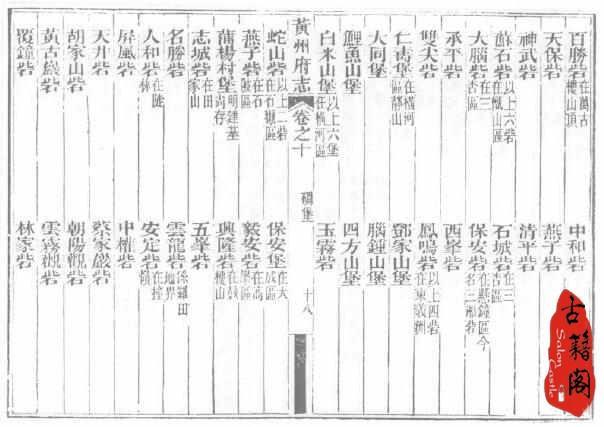 百勝砦在萬古樓山頂 中和砦
天保砦 燕子砦
神武砦 清平砦
蘇石砦以上六砦在山區 石城砦在三區
大腦砦在三吉區 保安砦在懸鐘區今名三砦
承平砦 西峯砦
雙尖砦 鳳鳴砦以上四砦在東義洲
仁壽堡在橫河區靜山 鄧家山堡
大同堡 腦鍾山堡
鯉魚山堡 四方山堡
白米山堡以上六堡在橫河區 玉霧砦
黃州府志 卷之十 碉堡 十八
蛇山砦以上二砦在石區 保安堡在大成區
燕子砦在石陂區 毅安砦在高區
蒲楊村堡明鍾基尚存 興隆砦在鼓樓山
志城砦在田家山 五峯砦
名勝砦 雲龍砦係羅田地界
人和砦在陡林 安定砦在嶺
屏風砦 中權砦
天井砦 蔡家巖砦
胡家山砦 朝陽砦
黃古巖砦 雲霧觀砦
覆鐘砦 林家砦
古籍閣
Salon Castle